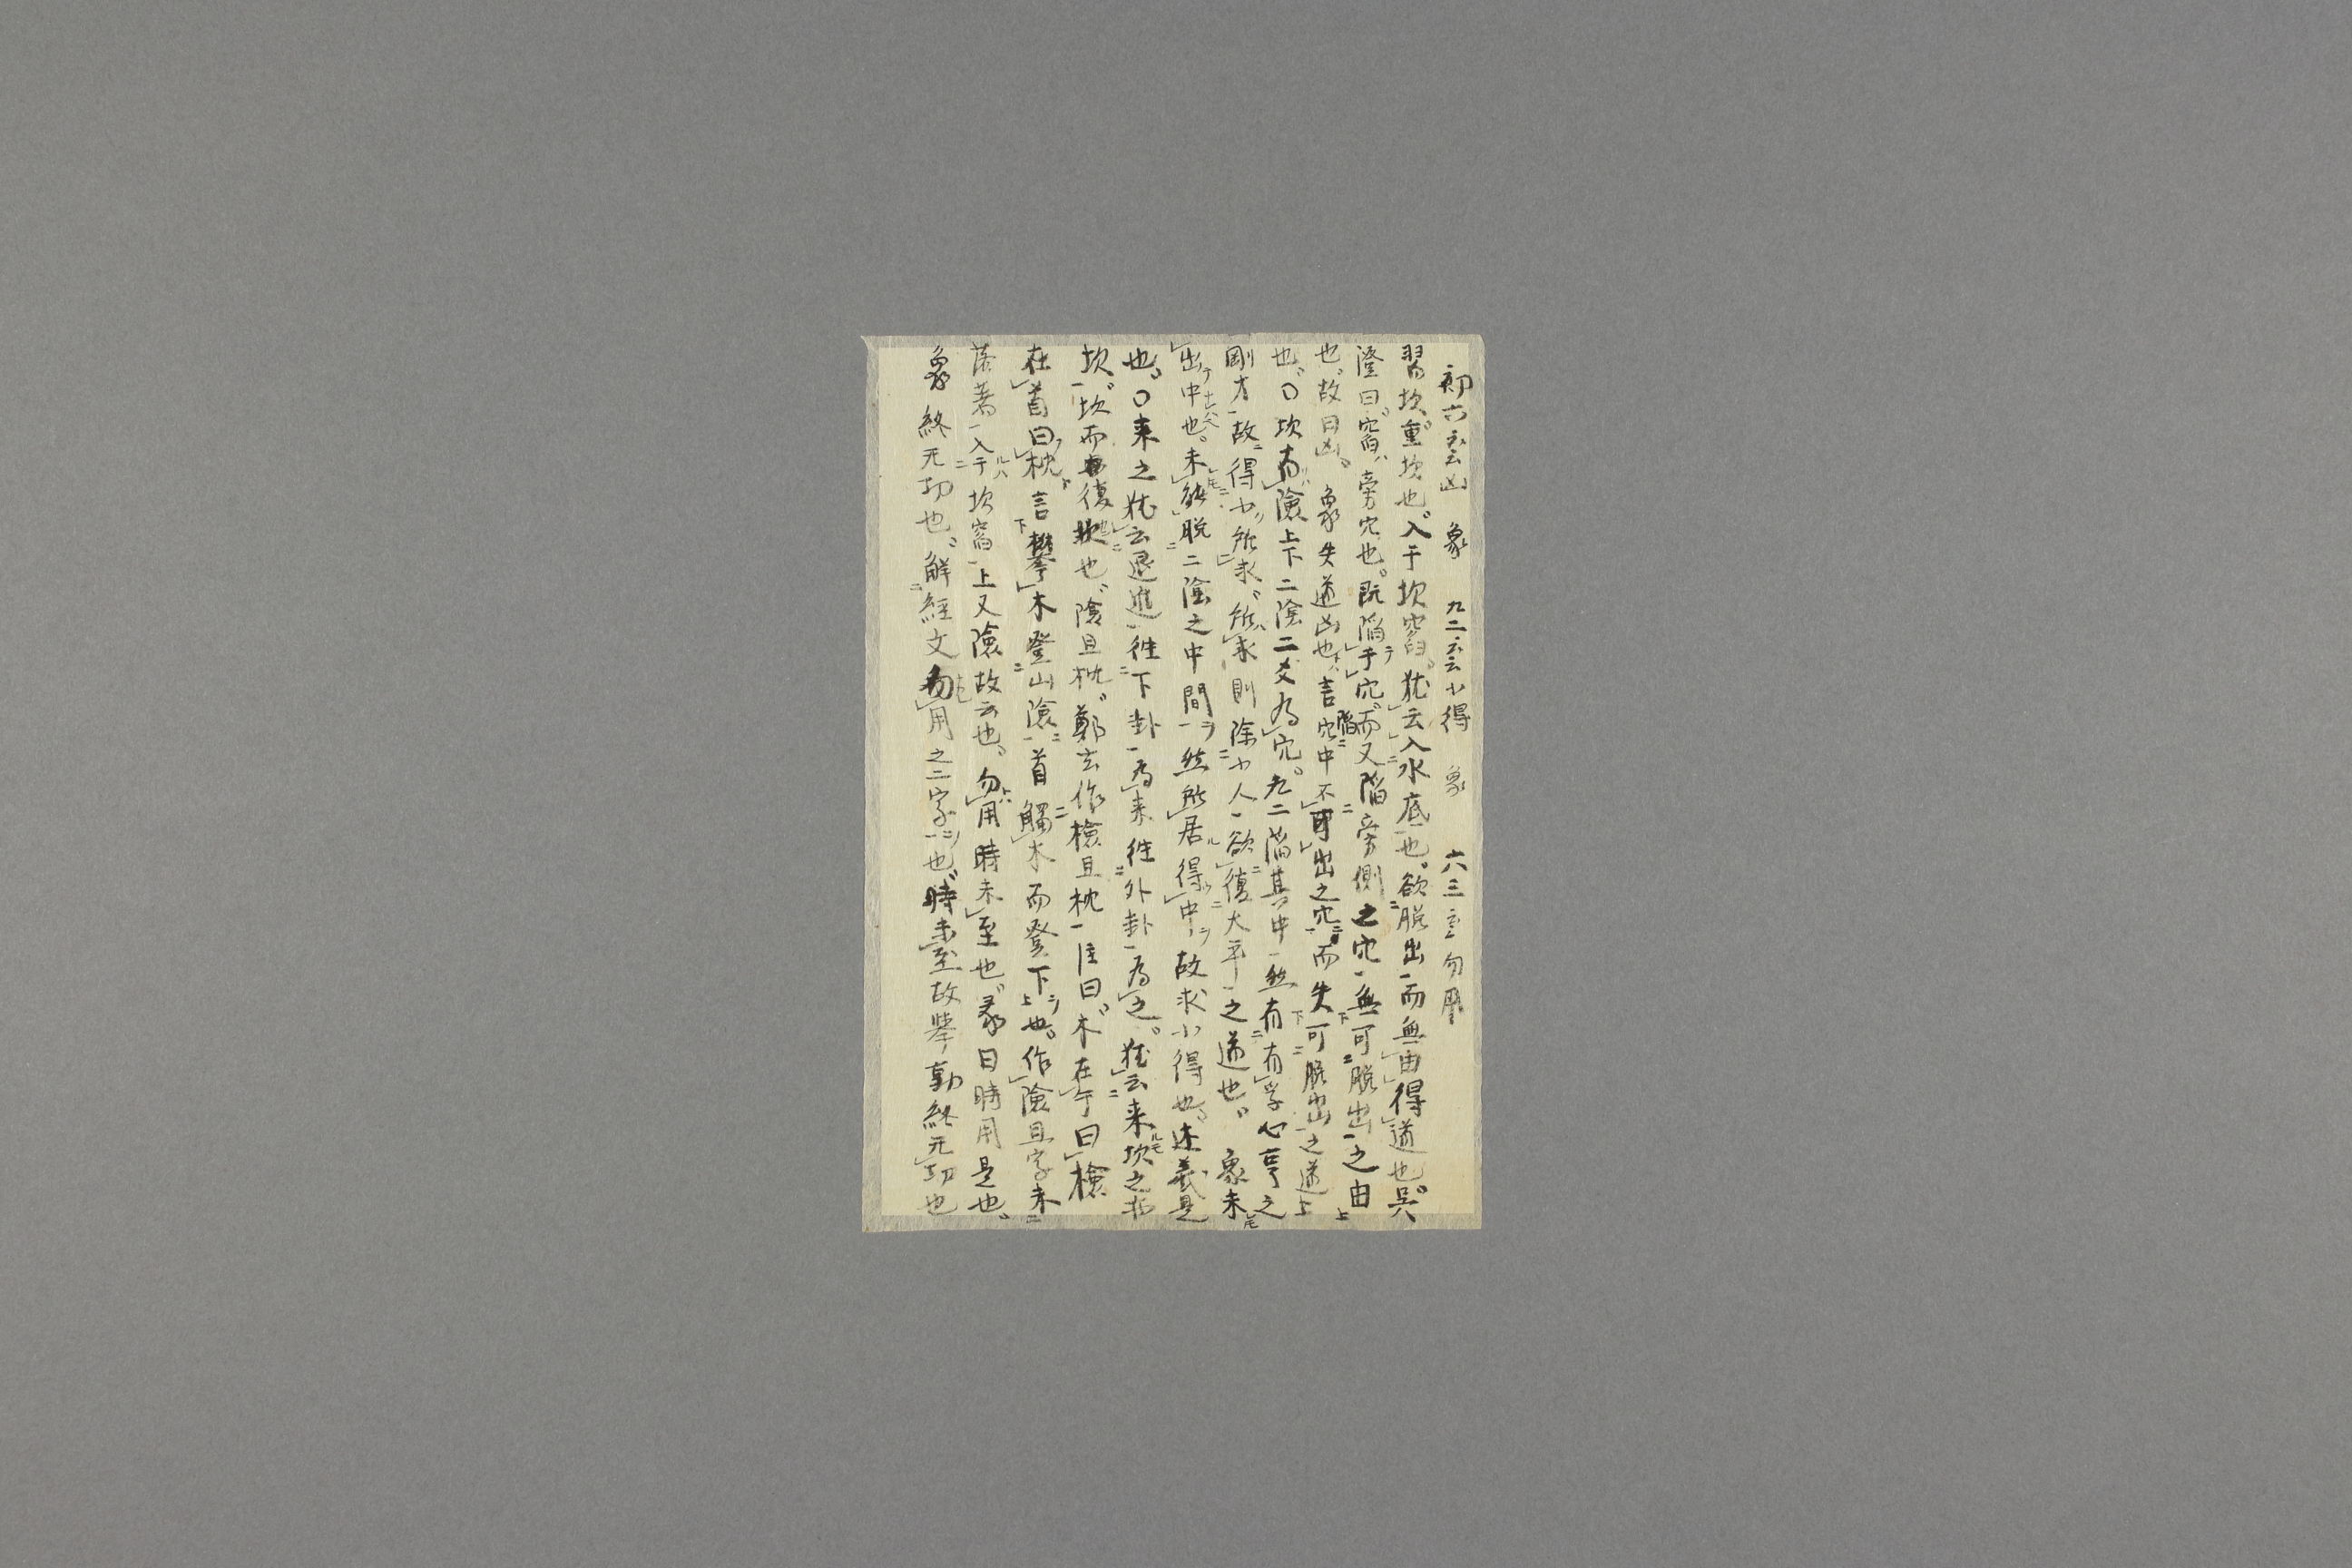 初六至凶　象　九二至小得　象　六三至勿用
習坎重坎也。入于坎窞。犹云入水底也。欲脱出而無由得道也。呉
澄曰。窞旁穴也。既陥于穴。而又陥旁側之穴無可脱出之由
也。故曰凶。　象失道凶也言陥穴中不可出之穴而失可脱出之道
也。〇坎有險上下二陰二爻為穴。九二陥其中然有有孚心亨之
剛才故得小所求。所求則除小人欲復大平之道也。　象未
出中也。未能脱二陰之中間然所居得中故求小得也。述義是
也。〇来之犹云退進往下卦為来往外卦為之。犹云来坎之
坎。坎而復坎也。險且枕。鄭玄作檢且枕注曰。木在手曰檢
在首曰枕言攀木登山險首觸木而登下也。作險且字未
落着入于坎窞上又險故云也。勿用時未至也。彖曰時用是也。
象終无功也。解経文勿用之二字也。時未至故挙動終无功也